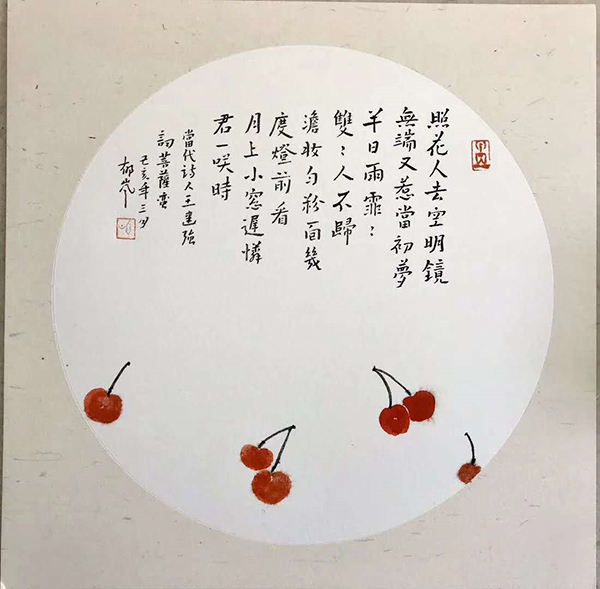 照花人去空明鏡
無端又惹當初夢
半日雨霏〻
雙〻人不歸
澹妝勻粉面幾
度燈前看
月上小窓遲憐
君一咲時
當代詩人王建強
詞菩薩蠻
己亥年三月
郁